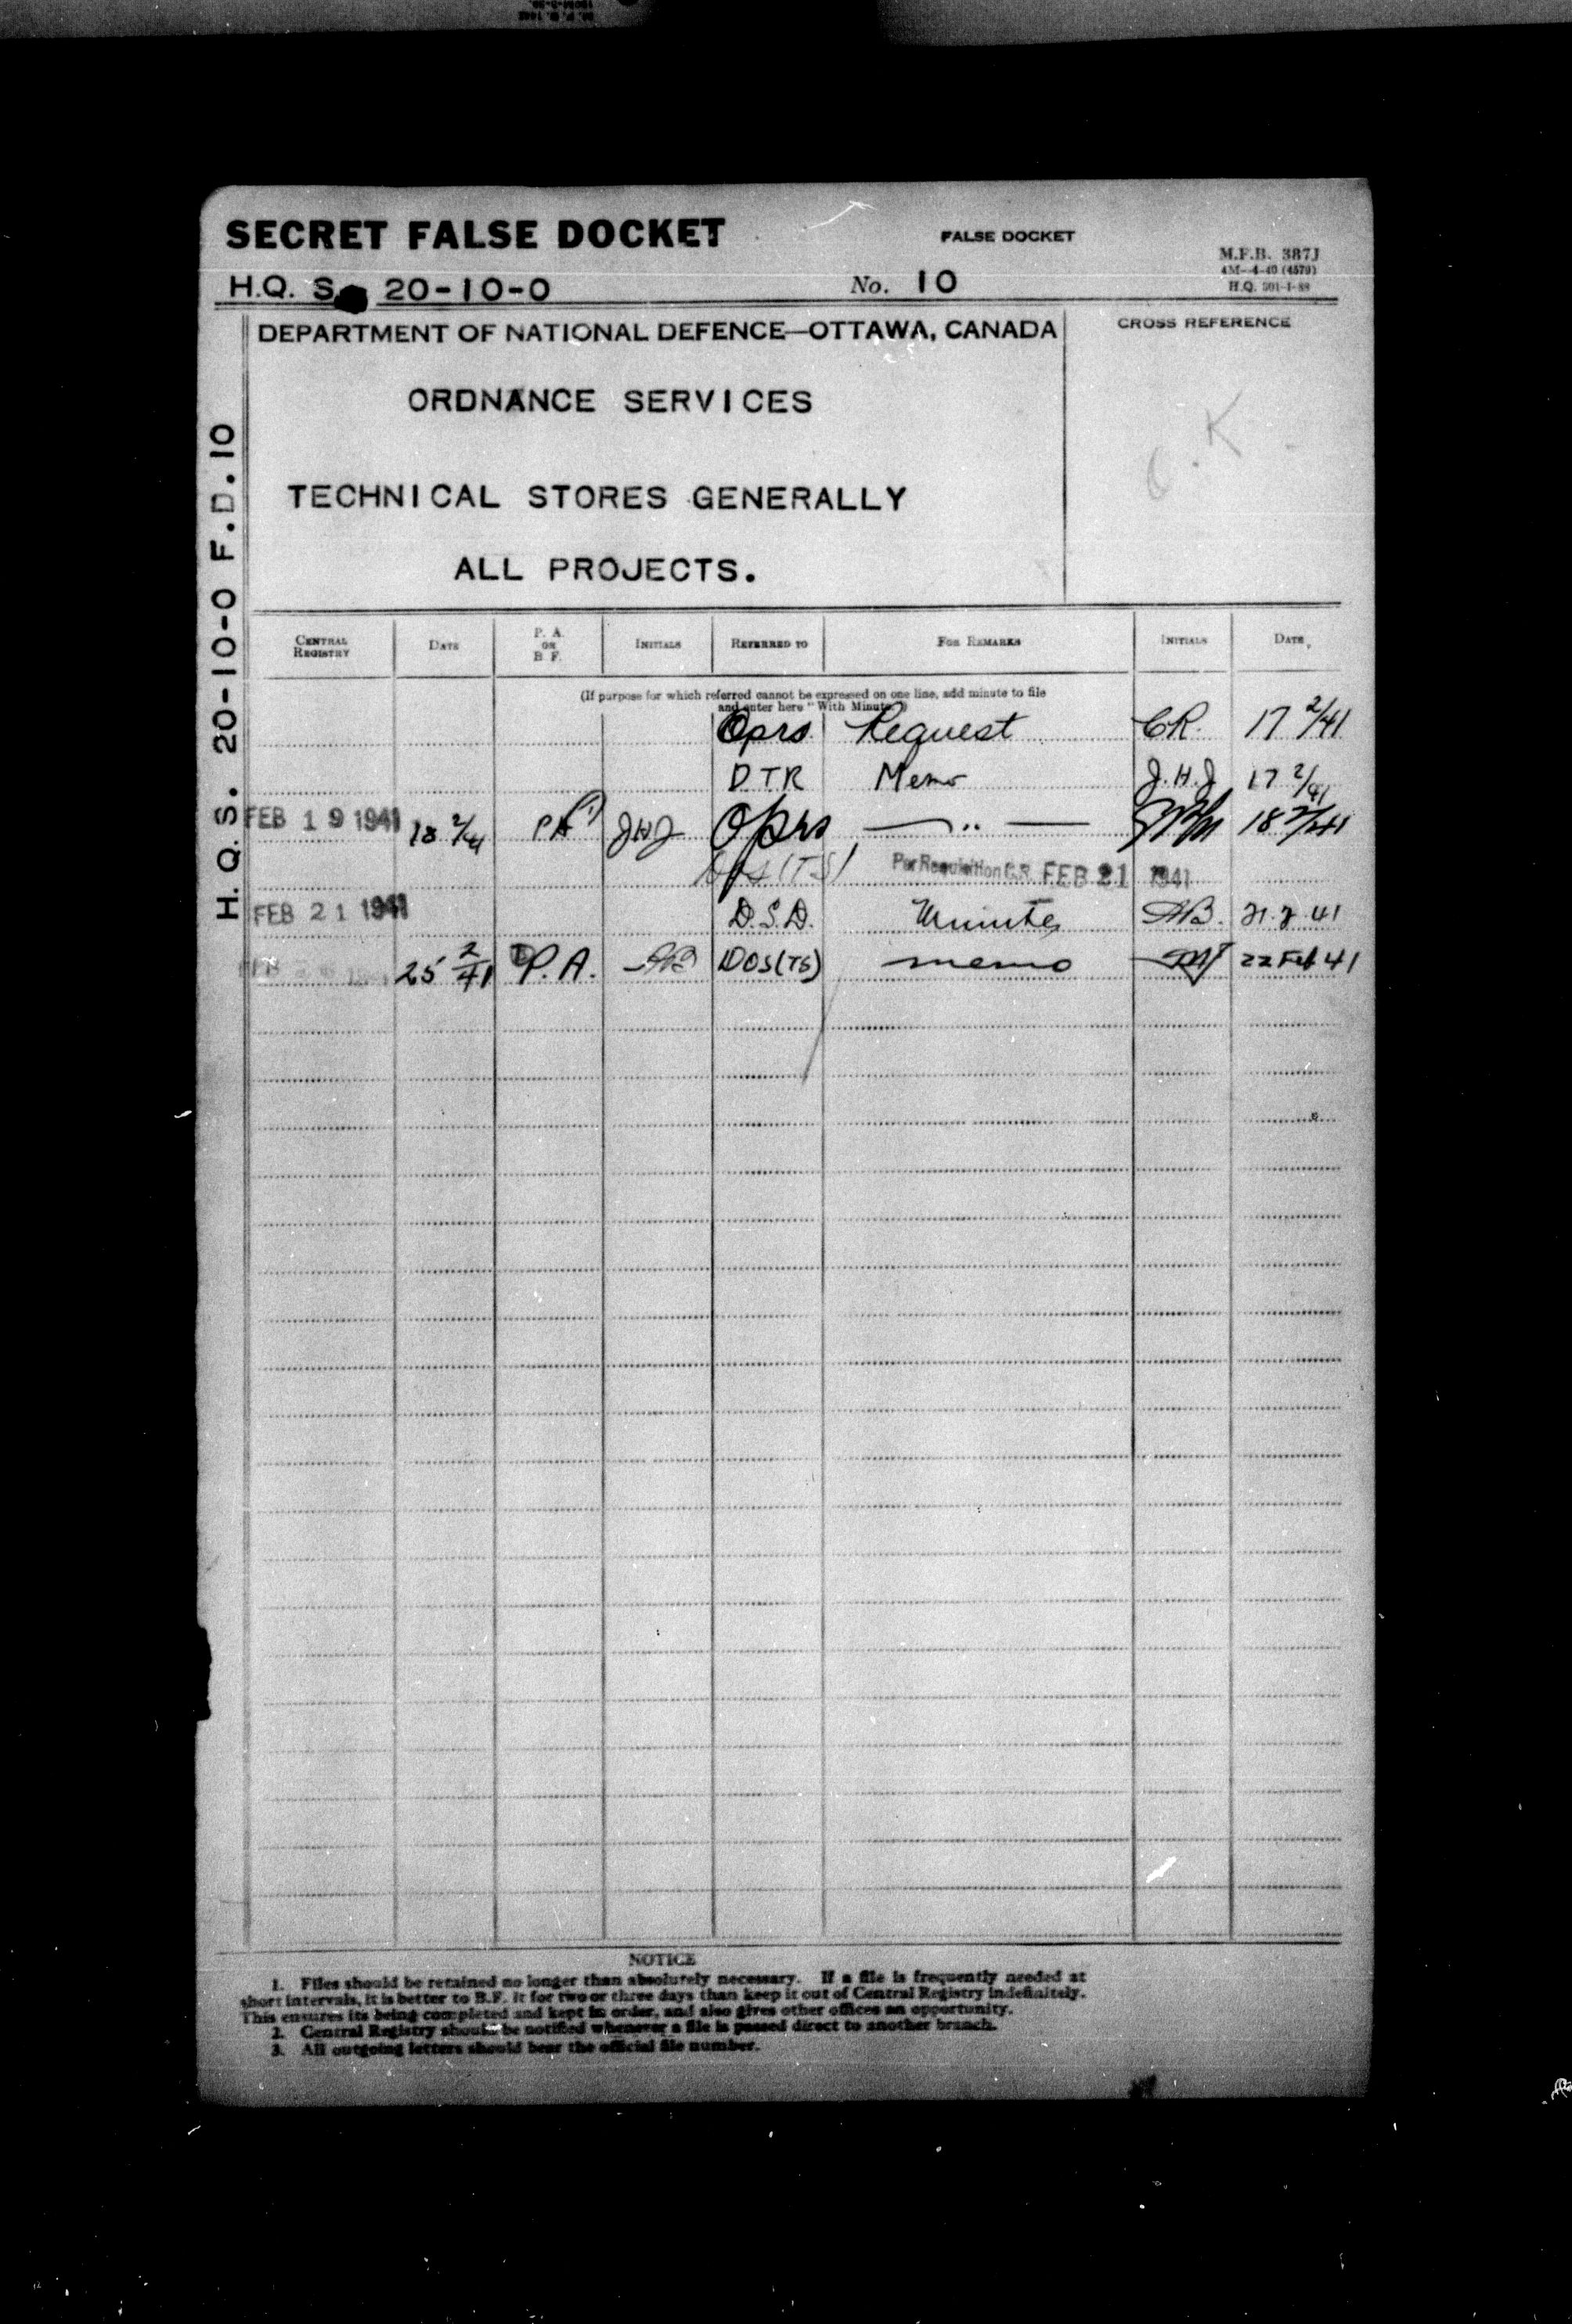 SECRET FALSE DOCKET
FALSE DOCKET
M.F.B. 387J
4M-4-40 (4579)
H.Q. S. 20-10-0
No. 10
H.Q.
DEPARTMENT OF NATIONAL DEFENCE—OTTAWA, CANADA
CROSS REFERENCE
O.K.
ORDNANCE SERVICES
TECHNICAL STORES GENERALLY
ALL PROJECTS.
H.Q.S. 20-10-0 F.D.10
CENTRAL REGISTRY DATE P. A. OR B F. INITIALS REFERRED TO FOR REMARKS INITIALS DATE
(If purpose for which referred cannot be expressed on one line, add minute to file
and enter here "With Minute")
Oprs Request CR. 17 2/41
DTR Memo J.H.J 17 2/41
FEB 19 1941 18 2/41 PA JHJ Oprs — .. — 18 2/41
DOS(TS) Per Requisition C.R. FEB 21 1941
FEB 21 1941 D.S.D. Minutes AB. 21.2.41
25 2/41 P.A. AB DOS(TS) memo 22 Feb 41
NOTICE
1. Files should be retained no longer than absolutely necessary. If a file is frequently needed at
short intervals, it is better to B.F. it for two or three days than keep it out of Central Registry indefinitely.
This ensures its being completed and kept in order, and also gives other offices an opportunity.
2. Central Registry should be notified whenever a file is passed direct to another branch.
3. All outgoing letters should bear the official file number.